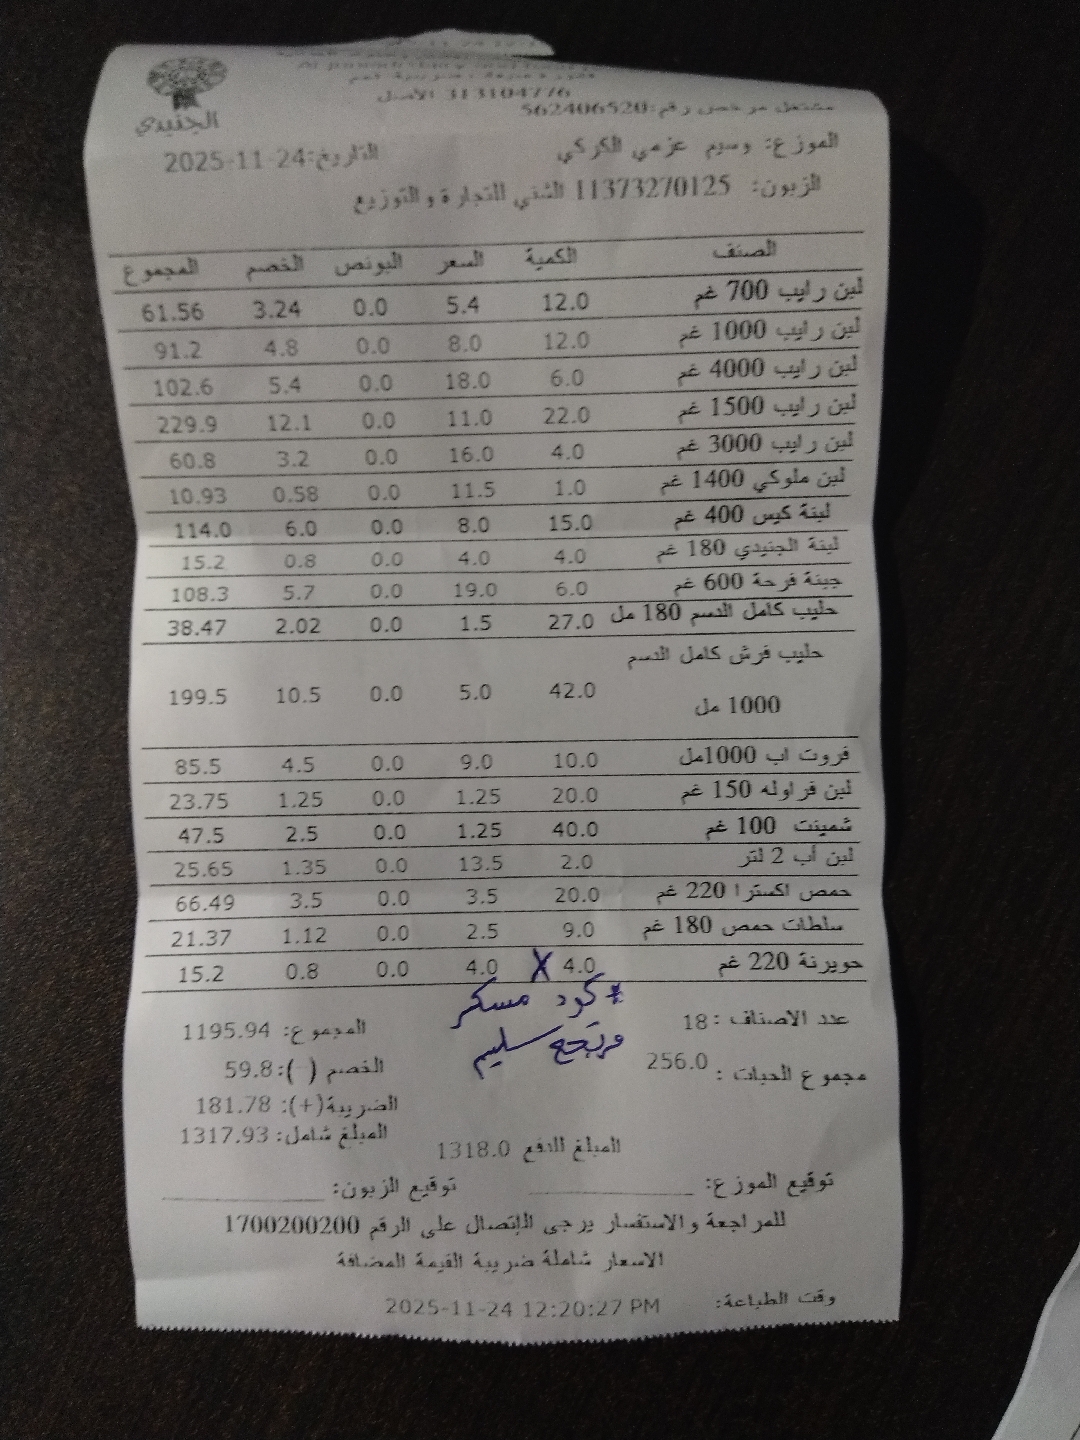 الجنيدي
313104776 الأصل
مشتغل مرخص رقم:562406520
الموزع: وسيم عزمي الكركي التاريخ:2025-11-24
الزبون: 11373270125 الشني للتجارة والتوزيع
الصنف الكمية السعر البونص الخصم المجموع
لبن رايب 700 غم 12.0 5.4 0.0 3.24 61.56
لبن رايب 1000 غم 12.0 8.0 0.0 4.8 91.2
لبن رايب 4000 غم 6.0 18.0 0.0 5.4 102.6
لبن رايب 1500 غم 22.0 11.0 0.0 12.1 229.9
لبن رايب 3000 غم 4.0 16.0 0.0 3.2 60.8
لبن ملوكي 1400 غم 1.0 11.5 0.0 0.58 10.93
لبنة كيس 400 غم 15.0 8.0 0.0 6.0 114.0
لبنة الجنيدي 180 غم 4.0 4.0 0.0 0.8 15.2
جبنة فرحة 600 غم 6.0 19.0 0.0 5.7 108.3
حليب كامل الدسم 180 مل 27.0 1.5 0.0 2.02 38.47
حليب فرش كامل الدسم
1000 مل 42.0 5.0 0.0 10.5 199.5
فروت اب 1000مل 10.0 9.0 0.0 4.5 85.5
لبن فراوله 150 غم 20.0 1.25 0.0 1.25 23.75
شمينت 100 غم 40.0 1.25 0.0 2.5 47.5
لبن أب 2 لتر 2.0 13.5 0.0 1.35 25.65
حمص اكسترا 220 غم 20.0 3.5 0.0 3.5 66.49
سلطات حمص 180 غم 9.0 2.5 0.0 1.12 21.37
حويرنة 220 غم 4.0 X 4.0 0.0 0.8 15.2
* كود مسكر
مرتجع سليم
عدد الاصناف : 18 المجموع: 1195.94
مجموع الحبات : 256.0 الخصم (-):59.8
الضريبة(+): 181.78
المبلغ شامل: 1317.93
المبلغ للدفع 1318.0
توقيع الموزع: ____________ توقيع الزبون: ____________
للمراجعة والاستفسار يرجى الإتصال على الرقم 1700200200
الاسعار شاملة ضريبة القيمة المضافة
وقت الطباعة: 2025-11-24 12:20:27 PM